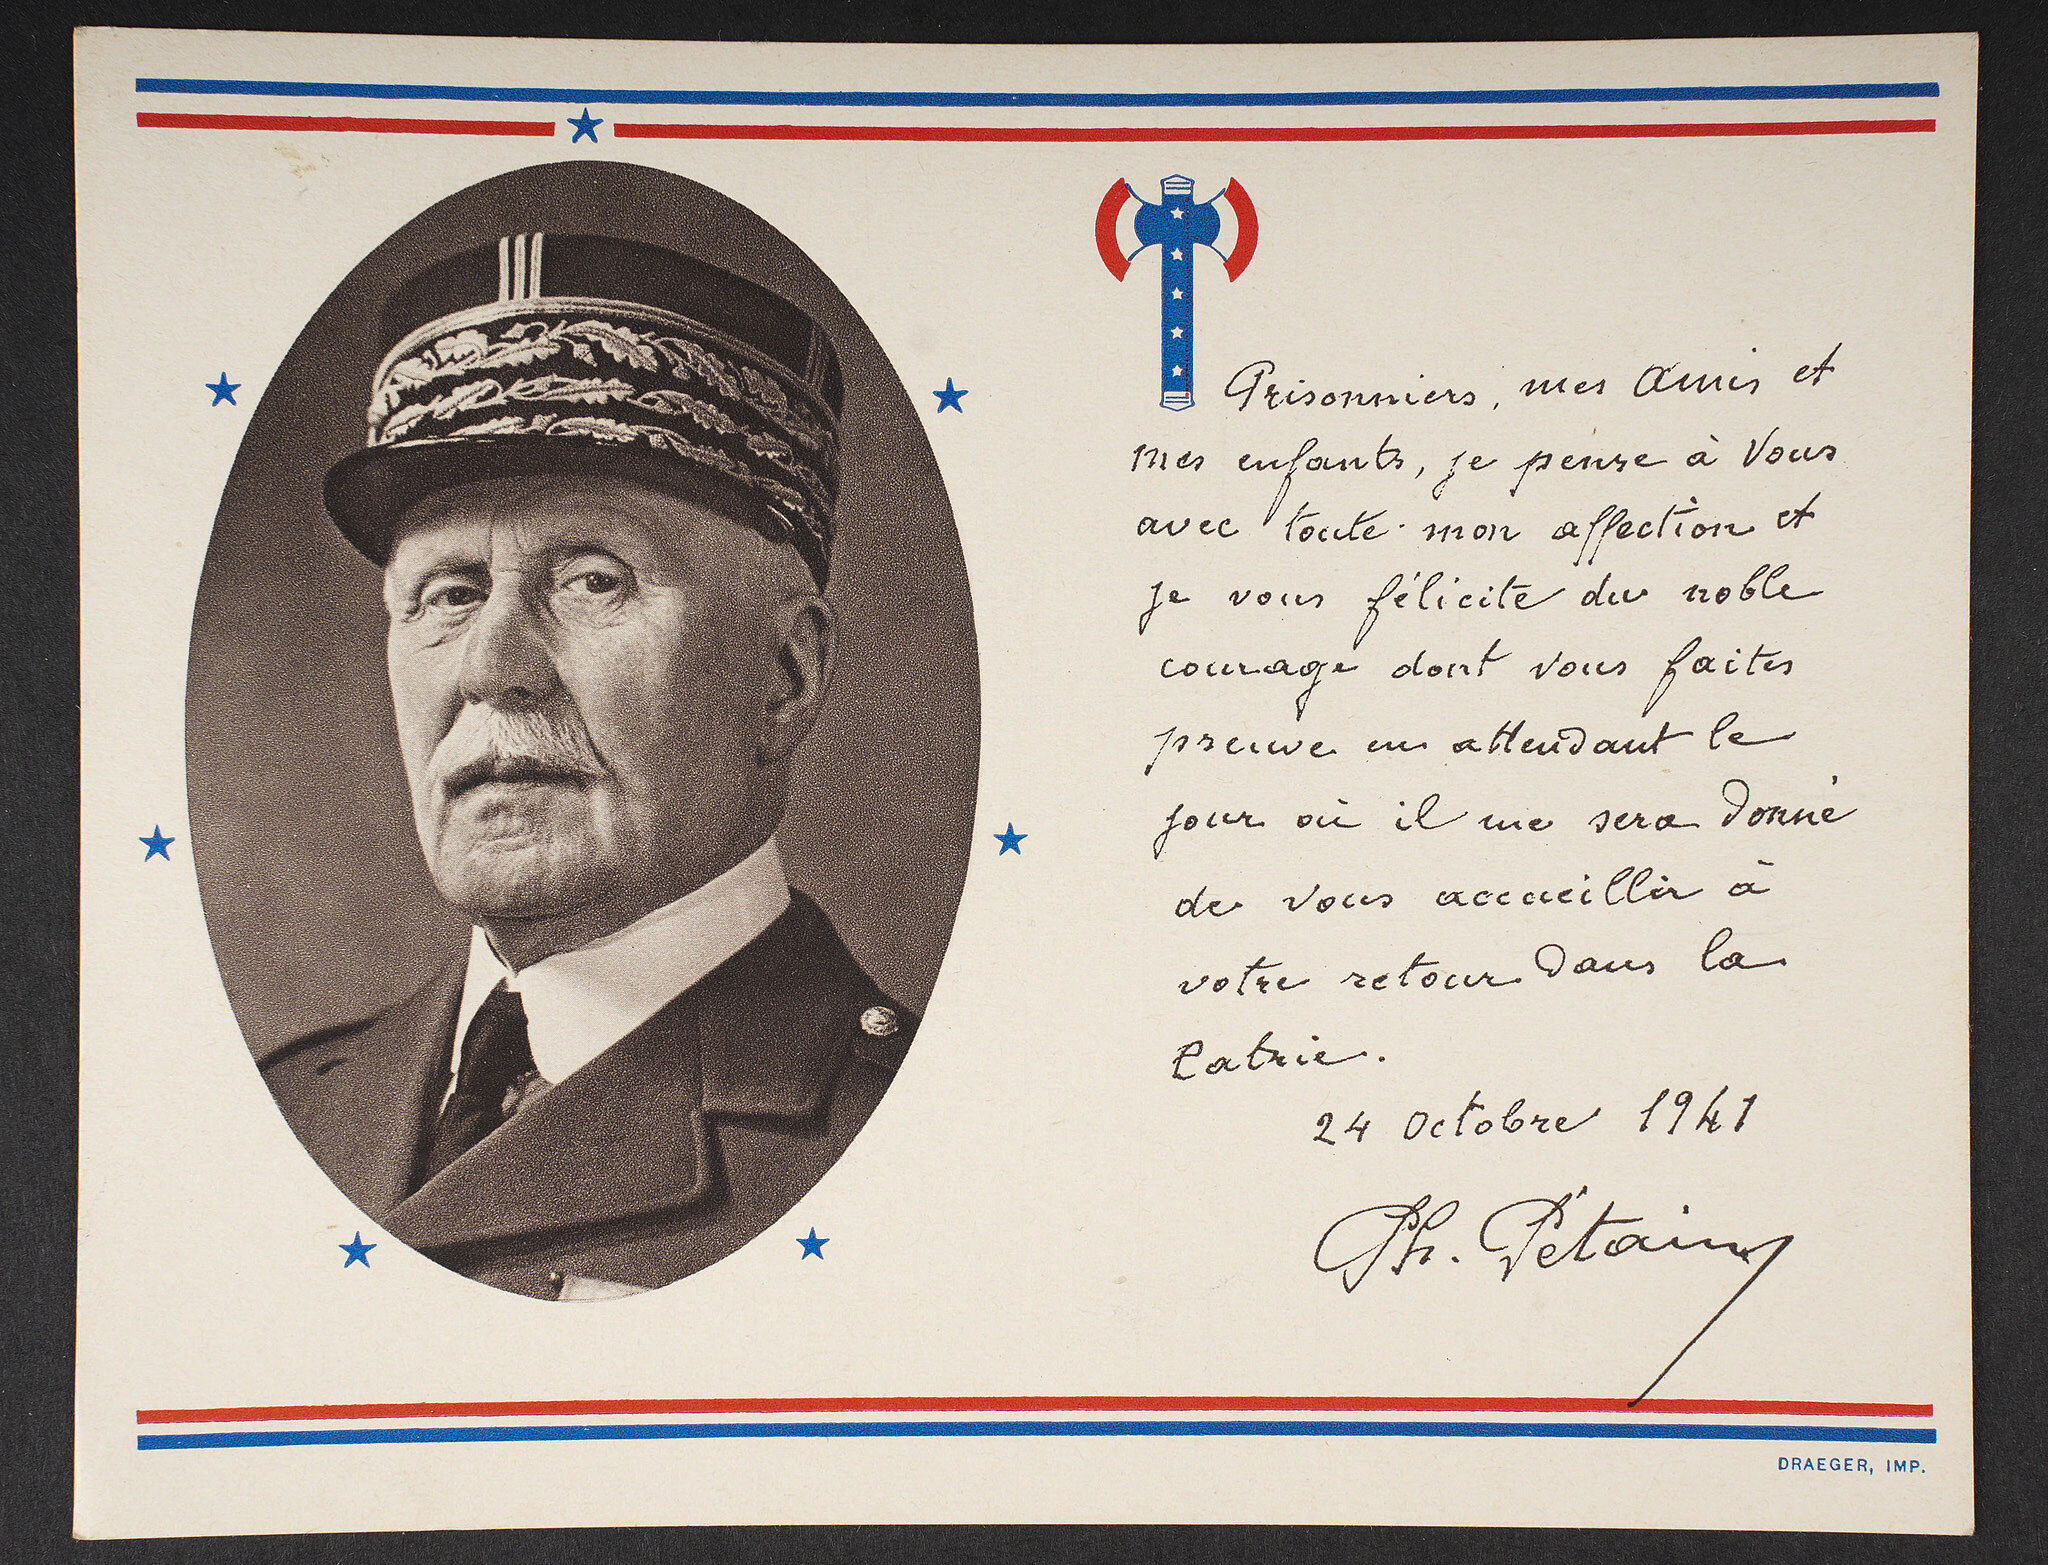 Prisonniers, mes Amis et
mes enfants, je pense à Vous
avec toute mon affection et
je vous félicite du noble
courage dont vous faites
preuve en attendant le
jour où il me sera donné
de vous accueillir à
votre retour dans la
Patrie.
24 Octobre 1941
Ph. Pétain
DRAEGER, IMP.